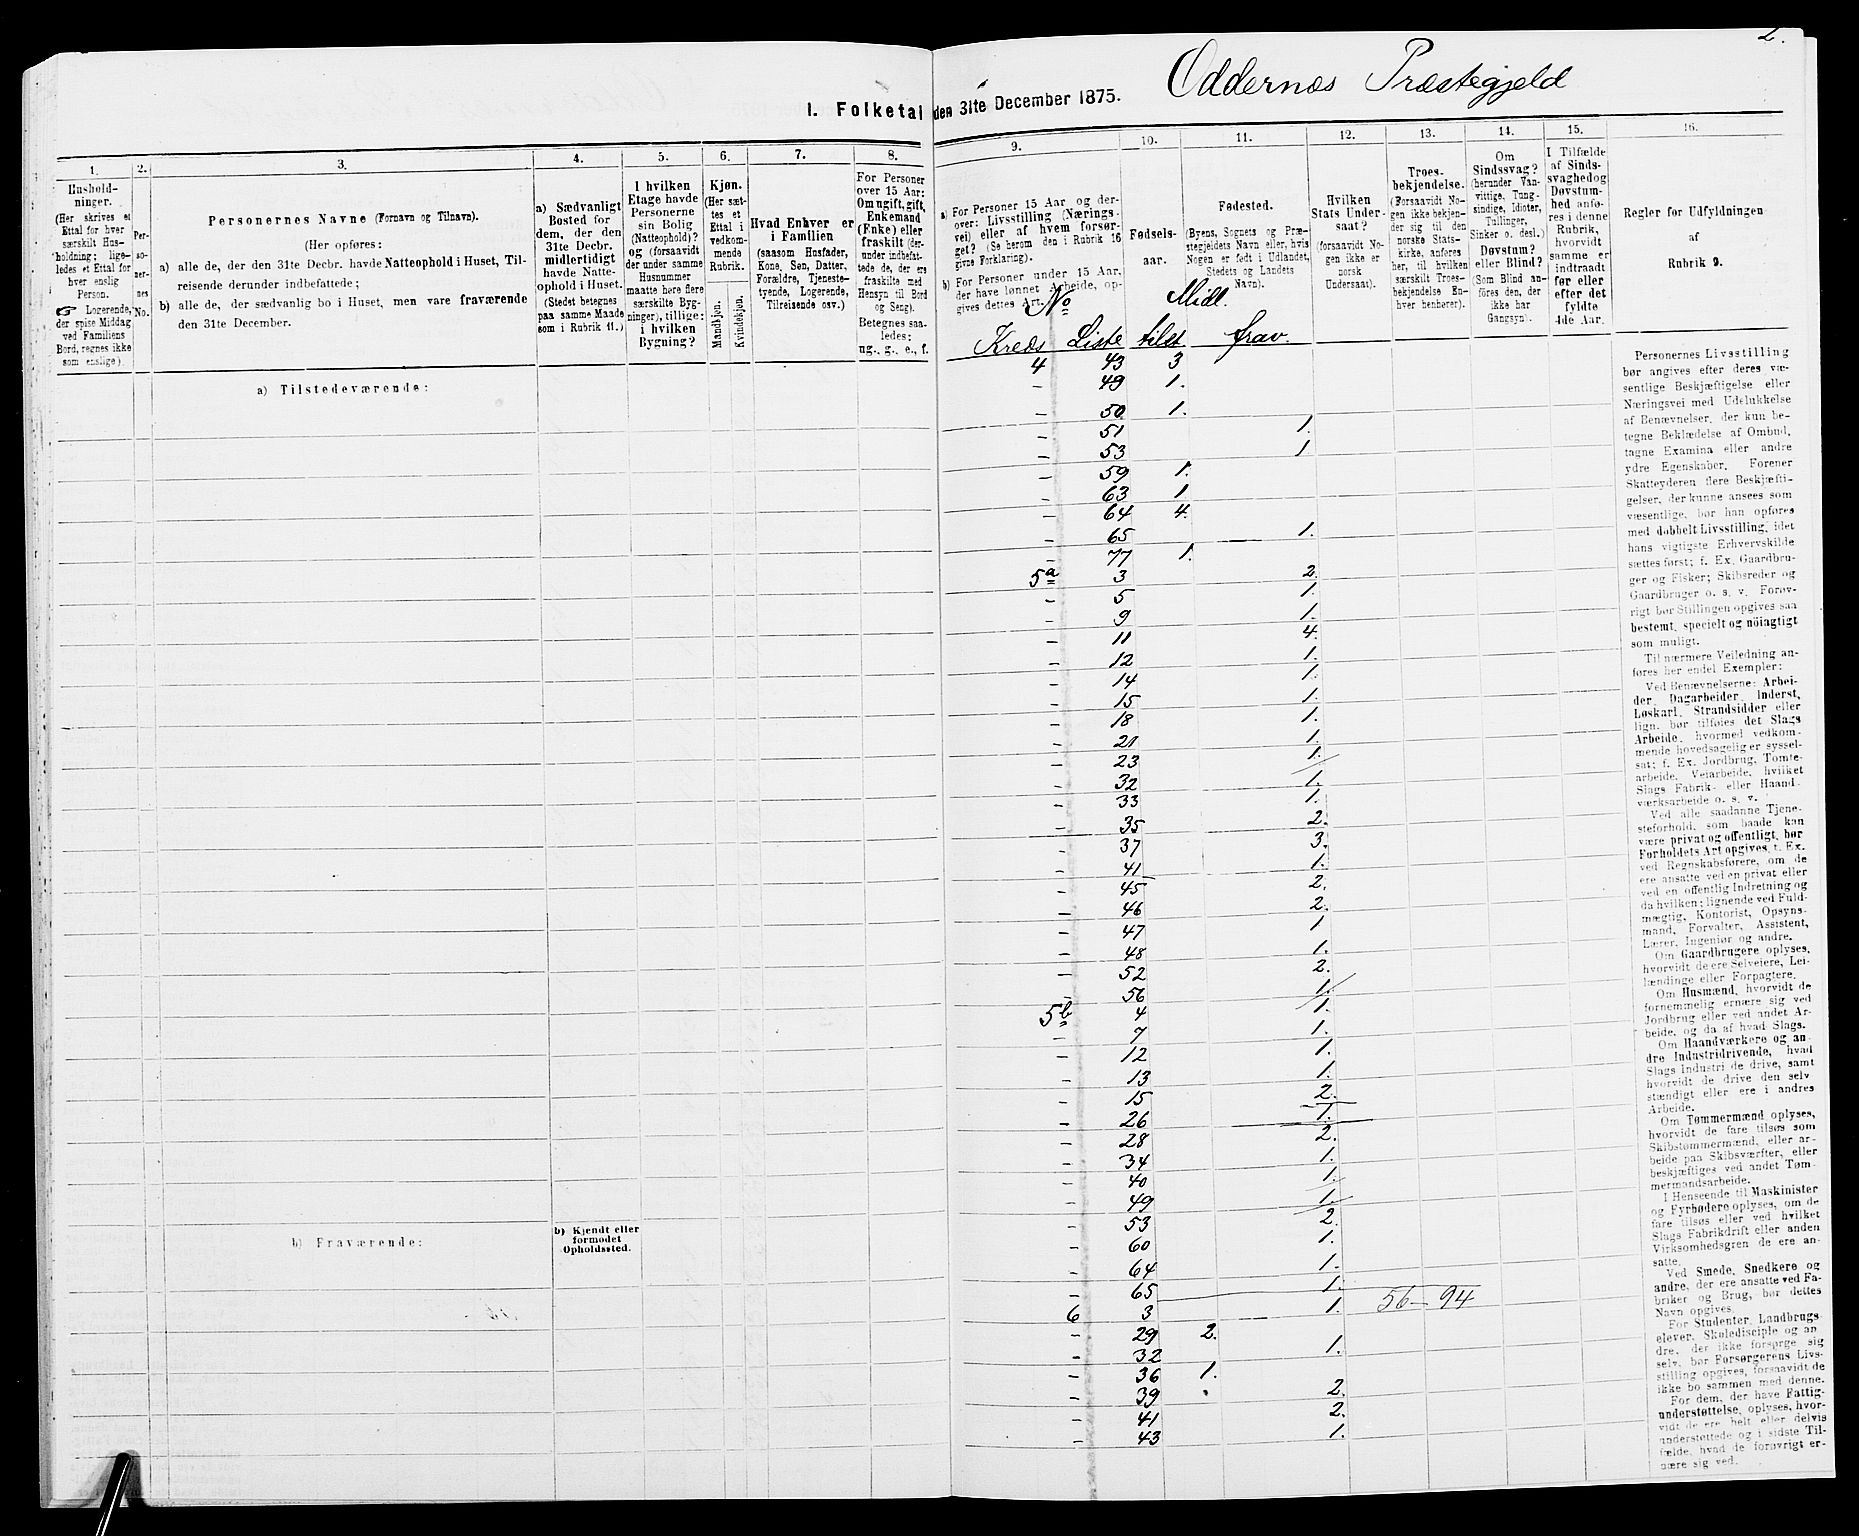 2.
Oddernæs Præstegjeld
I. Folketal den 31te December 1875.
1.
Hushold-
ninger.
(Her skrives et
Ettal for hver
særskilt Hus-
holdning; lige-
ledes et Ettal for
hver enslig
Person.
☞ Logerende,
der spise Middag
ved Familiens
Bord, regnes ikke
som enslige).
2.
Per-
so-
ner-
nes
No.
3.
Personernes Navne (Fornavn og Tilnavn).
(Her opføres:
a) alle de, der den 31te Decbr. havde Natteophold i Huset, Til-
reisende derunder indbefattede;
b) alle de, der sædvanlig bo i Huset, men vare fraværende
den 31te December.
4.
a) Sædvanligt
Bosted for
dem, der den
31te Decbr.
midlertidigt
havde Natte-
ophold i Huset.
(Stedet betegnes
paa samme Maade
som i Rubrik 11.)
5.
I hvilken
Etage havde
Personerne
sin Bolig
(Natteophold)?
og (forsaavidt
der under samme
Husnummer
maatte høre flere
særskilte Byg-
ninger), tillige:
i hvilken
Bygning?
6.
Kjøn.
(Her sæt-
tes et
Ettal i
vedkom-
mende
Rubrik.
Mandkjøn.
Kvindekjøn.
7.
Hvad Enhver er
i Familien
(saasom Husfader,
Kone, Søn, Datter,
Forældre, Tjeneste-
tyende, Logerende,
Tilreisende osv.)
8.
For Personer
over 15 Aar:
Om ugift, gift,
Enkemand
(Enke) eller
fraskilt (der-
under indbefat-
tede de, der ere
fraskilte med
Hensyn til Bord
og Seng).
Betegnes saa-
ledes:
ug., g., e., f.
9.
a) For Personer 15 Aar og der-
over: Livsstilling (Nærings-
vei) eller af hvem forsør-
get? (Se herom den i Rubrik 16
givne Forklaring).
b) For Personer under 15 Aar,
der have lønnet Arbeide, op-
gives dettes Art.
10.
Fødsels-
aar.
11.
Fødested.
(Byens, Sognets og Præ-
stegjeldets Navn eller, hvis
Nogen er født i Udlandet,
Stedets og Landets
Navn).
12.
Hvilken
Stats Under-
saat?
(forsaavidt No-
gen ikke er
norsk
Undersaat).
13.
Troes-
bekjendelse.
(Forsaavidt No-
gen ikke bekjen-
der sig til den
norske Stats-
kirke, anføres
her, til hvilken
særskilt Troes-
bekjendelse En-
hver henhører).
14.
Om
Sindssvag?
(herunder Van-
vittige, Tung-
sindige, Idioter,
Tullinger,
Sinker o. desl.)
Døvstum?
eller Blind?
(Som Blind an-
føres den, der
ikke har
Gangsyn).
15.
I Tilfælde
af Sinds-
svaghed og
Døvstum-
hed anfø-
res i denne
Rubrik,
hvorvidt
samme er
indtraadt
før eller
efter det
fyldte
4de Aar.
16.
Regler for Udfyldningen
af
Rubrik 9.
No Midl.
Kreds Liste tilst frav.
a) Tilstedeværende:
4 43 3
- 49 1.
- 50 1.
- 51 1.
- 53 1
- 59 1.
- 63 1
- 64 4.
- 65 1.
- 77 1.
5a 3 2.
- 5 1.
- 9 1.
- 11 4.
- 12 1.
- 14 1.
- 15 1.
- 18 1.
- 21 1.
- 23 1.
- 32 1.
- 33 1.
- 35 2.
- 37 3.
- 41 1.
- 45 2.
- 46 2.
- 47 1
- 48 1.
- 52 2.
- 56 1.
5b 4 1.
- 7 1.
- 12 1.
- 13 1.
- 15 2.
- 26 1.
- 28 2.
- 34 1.
- 40 1.
- 49 1.
- 53 2.
- 60 1.
- 64 1.
- 65 1.
6 3 1. 56-94
- 29 2.
- 32 1.
- 36 1.
- 39 2.
- 41 2.
- 43 1.
b) Fraværende:
b) Kjendt eller
formodet
Opholdssted.
Personernes Livsstilling
bør angives efter deres væ-
sentlige Beskjæftigelse eller
Næringsvei med Udelukkelse
af Benævnelser, der kun be-
tegne Beklædelse af Ombud,
tagne Examina eller andre
ydre Egenskaber. Forener
Skatteyderen flere Beskjæfti-
gelser, der kunne ansees som
væsentlige, bør han opføres
med dobbelt Livsstilling, idet
hans vigtigste Erhvervskilde
sættes først; f. Ex. Gaardbru-
ger og Fisker; Skibsreder og
Gaardbruger o. s. v. Forøv-
rigt bør Stillingen opgives saa
bestemt, specielt og nöiagtigt
som muligt.
Til nærmere Veiledning an-
føres her endel Exempler:
Ved Benævnelserne: Arbei-
der, Dagarbeider, Inderst,
Løskarl, Strandsidder eller
lign. bør tilføies det Slags
Arbeide, hvormed vedkom-
mende hovedsagelig er syssel-
sat; f. Ex. Jordbrug, Tomte-
arbeide, Veiarbeide, hvilket
Slags Fabrik- eller Haand-
værksarbeide o. s. v.
Ved alle saadanne Tjene-
steforhold, som baade kan
være privat og offentligt, bør
Forholdets Art opgives, t. Ex.
ved Regnskabsførere, om de
ere ansatte ved en privat eller
ved en offentlig Indretning og
da hvilken; lignende ved Fuld-
mægtig, Kontorist, Opsyns-
mand, Forvalter, Assistent,
Lærer, Ingeniør og andre.
Om Gaardbrugere oplyses,
hvorvidt de ere Selveiere, Lei-
lændinge eller Forpagtere.
Om Husmænd, hvorvidt de
fornemmelig ernære sig ved
Jordbrug eller ved andet Ar-
beide, og da af hvad Slags.
Om Haandværkere og an-
dre Industridrivende, hvad
Slags Industri de drive, samt
hvorvidt de drive den selv
stændigt eller ere i andres
Arbeide.
Om Tømmermænd oplyses,
hvorvidt de fare tilsøs som
Skibstømmermænd, eller ar-
beide paa Skibsværfter, eller
beskjæftiges ved andet Tøm-
mermandsarbeide.
I Henseende til Maskinister
og Fyrbødere oplyses, om de
fare tilsøs eller ved hvilket
Slags Fabrikdrift eller anden
Virksomhedsgren de ere an-
satte.
Ved Smede, Snedkere og
andre, der ere ansatte ved Fa-
briker og Brug, bør dettes
Navn opgives.
For Studenter, Landbrugs-
elever, Skoledisciple og an
dre, der ikke forsørge sig
selv, bør Forsørgerens Livs-
stilling opgives, forsaavidt de
ikke bo sammen med denne.
For dem, der have Fattig-
understøttelse, oplyses, hvor-
vidt de ere helt eller delvis
understøttede og i sidste Til-
fælde, hvad de forøvrigt er-
nære sig ved.